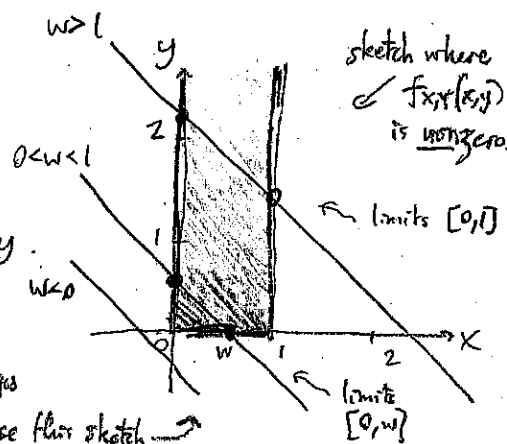 w>1
y
sketch where
f_{X,Y}(x,y)
is nonzero.
2
0<w<1
limits [0,1]
1
y.
w<0
0
w
1
2
x
limits
[0,w]
this sketch